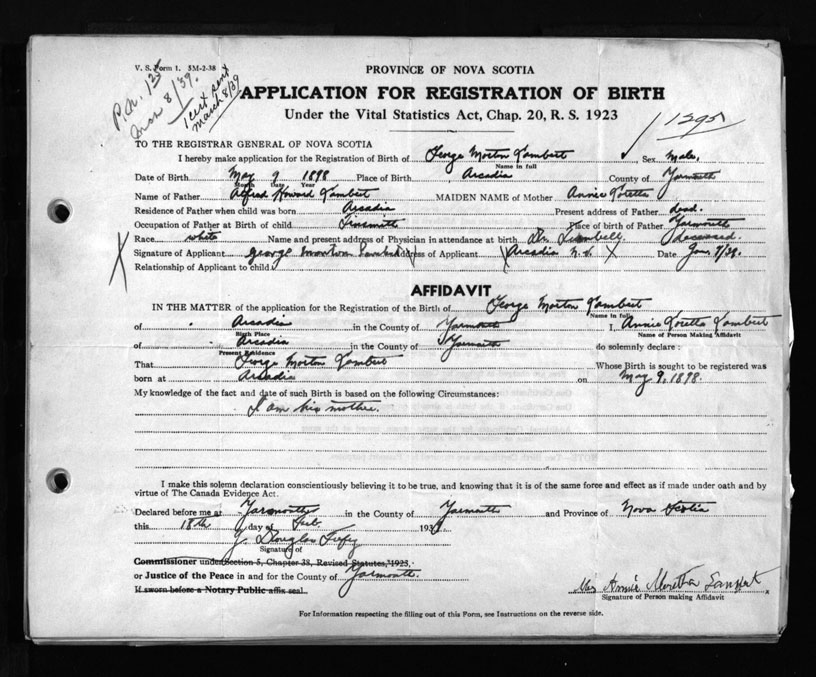 V. S. Form 1. 5M-2-38
P.N. 125
Mar 8/39.
1 cert sent
March 8/39
PROVINCE OF NOVA SCOTIA
APPLICATION FOR REGISTRATION OF BIRTH
Under the Vital Statistics Act, Chap. 20, R. S. 1923
1295
TO THE REGISTRAR GENERAL OF NOVA SCOTIA
I hereby make application for the Registration of Birth of George Morton Lambert Sex Male,
Name in full
Date of Birth May 9 1898 Place of Birth Arcadia County of Yarmouth
Month Date Year
Name of Father Alfred Howard Lambert MAIDEN NAME of Mother Annie
Residence of Father when child was born Arcadia Present address of Father dead.
Occupation of Father at Birth of child Tinsmith Place of birth of Father Yarmouth
Race white Name and present address of Physician in attendance at birth Dr. deceased.
Signature of Applicant George Morton Lambert Address of Applicant Arcadia N.S. Date Jan. 7/39.
Relationship of Applicant to child
AFFIDAVIT
IN THE MATTER of the application for the Registration of the Birth of George Morton Lambert
Name in full
of Arcadia in the County of Yarmouth I, Annie Lambert
Birth Place Name of Person Making Affidavit
of Arcadia in the County of Yarmouth do solemnly declare:
Present Residence
That George Morton Lambert Whose Birth is sought to be registered was
born at Arcadia on May 9, 1898.
My knowledge of the fact and date of such Birth is based on the following Circumstances:
I am his mother.
I make this solemn declaration conscientiously believing it to be true, and knowing that it is of the same force and effect as if made under oath and by
virtue of The Canada Evidence Act.
Declared before me at Yarmouth in the County of Yarmouth and Province of Nova Scotia
this 18th day of Feb 1939
J. Douglas
Signature of
Commissioner under Section 5, Chapter 38, Revised Statutes, 1923,
or Justice of the Peace in and for the County of Yarmouth.
If sworn before a Notary Public affix seal.
Mrs Annie Lambert
Signature of Person making Affidavit
For Information respecting the filling out of this Form, see Instructions on the reverse side.